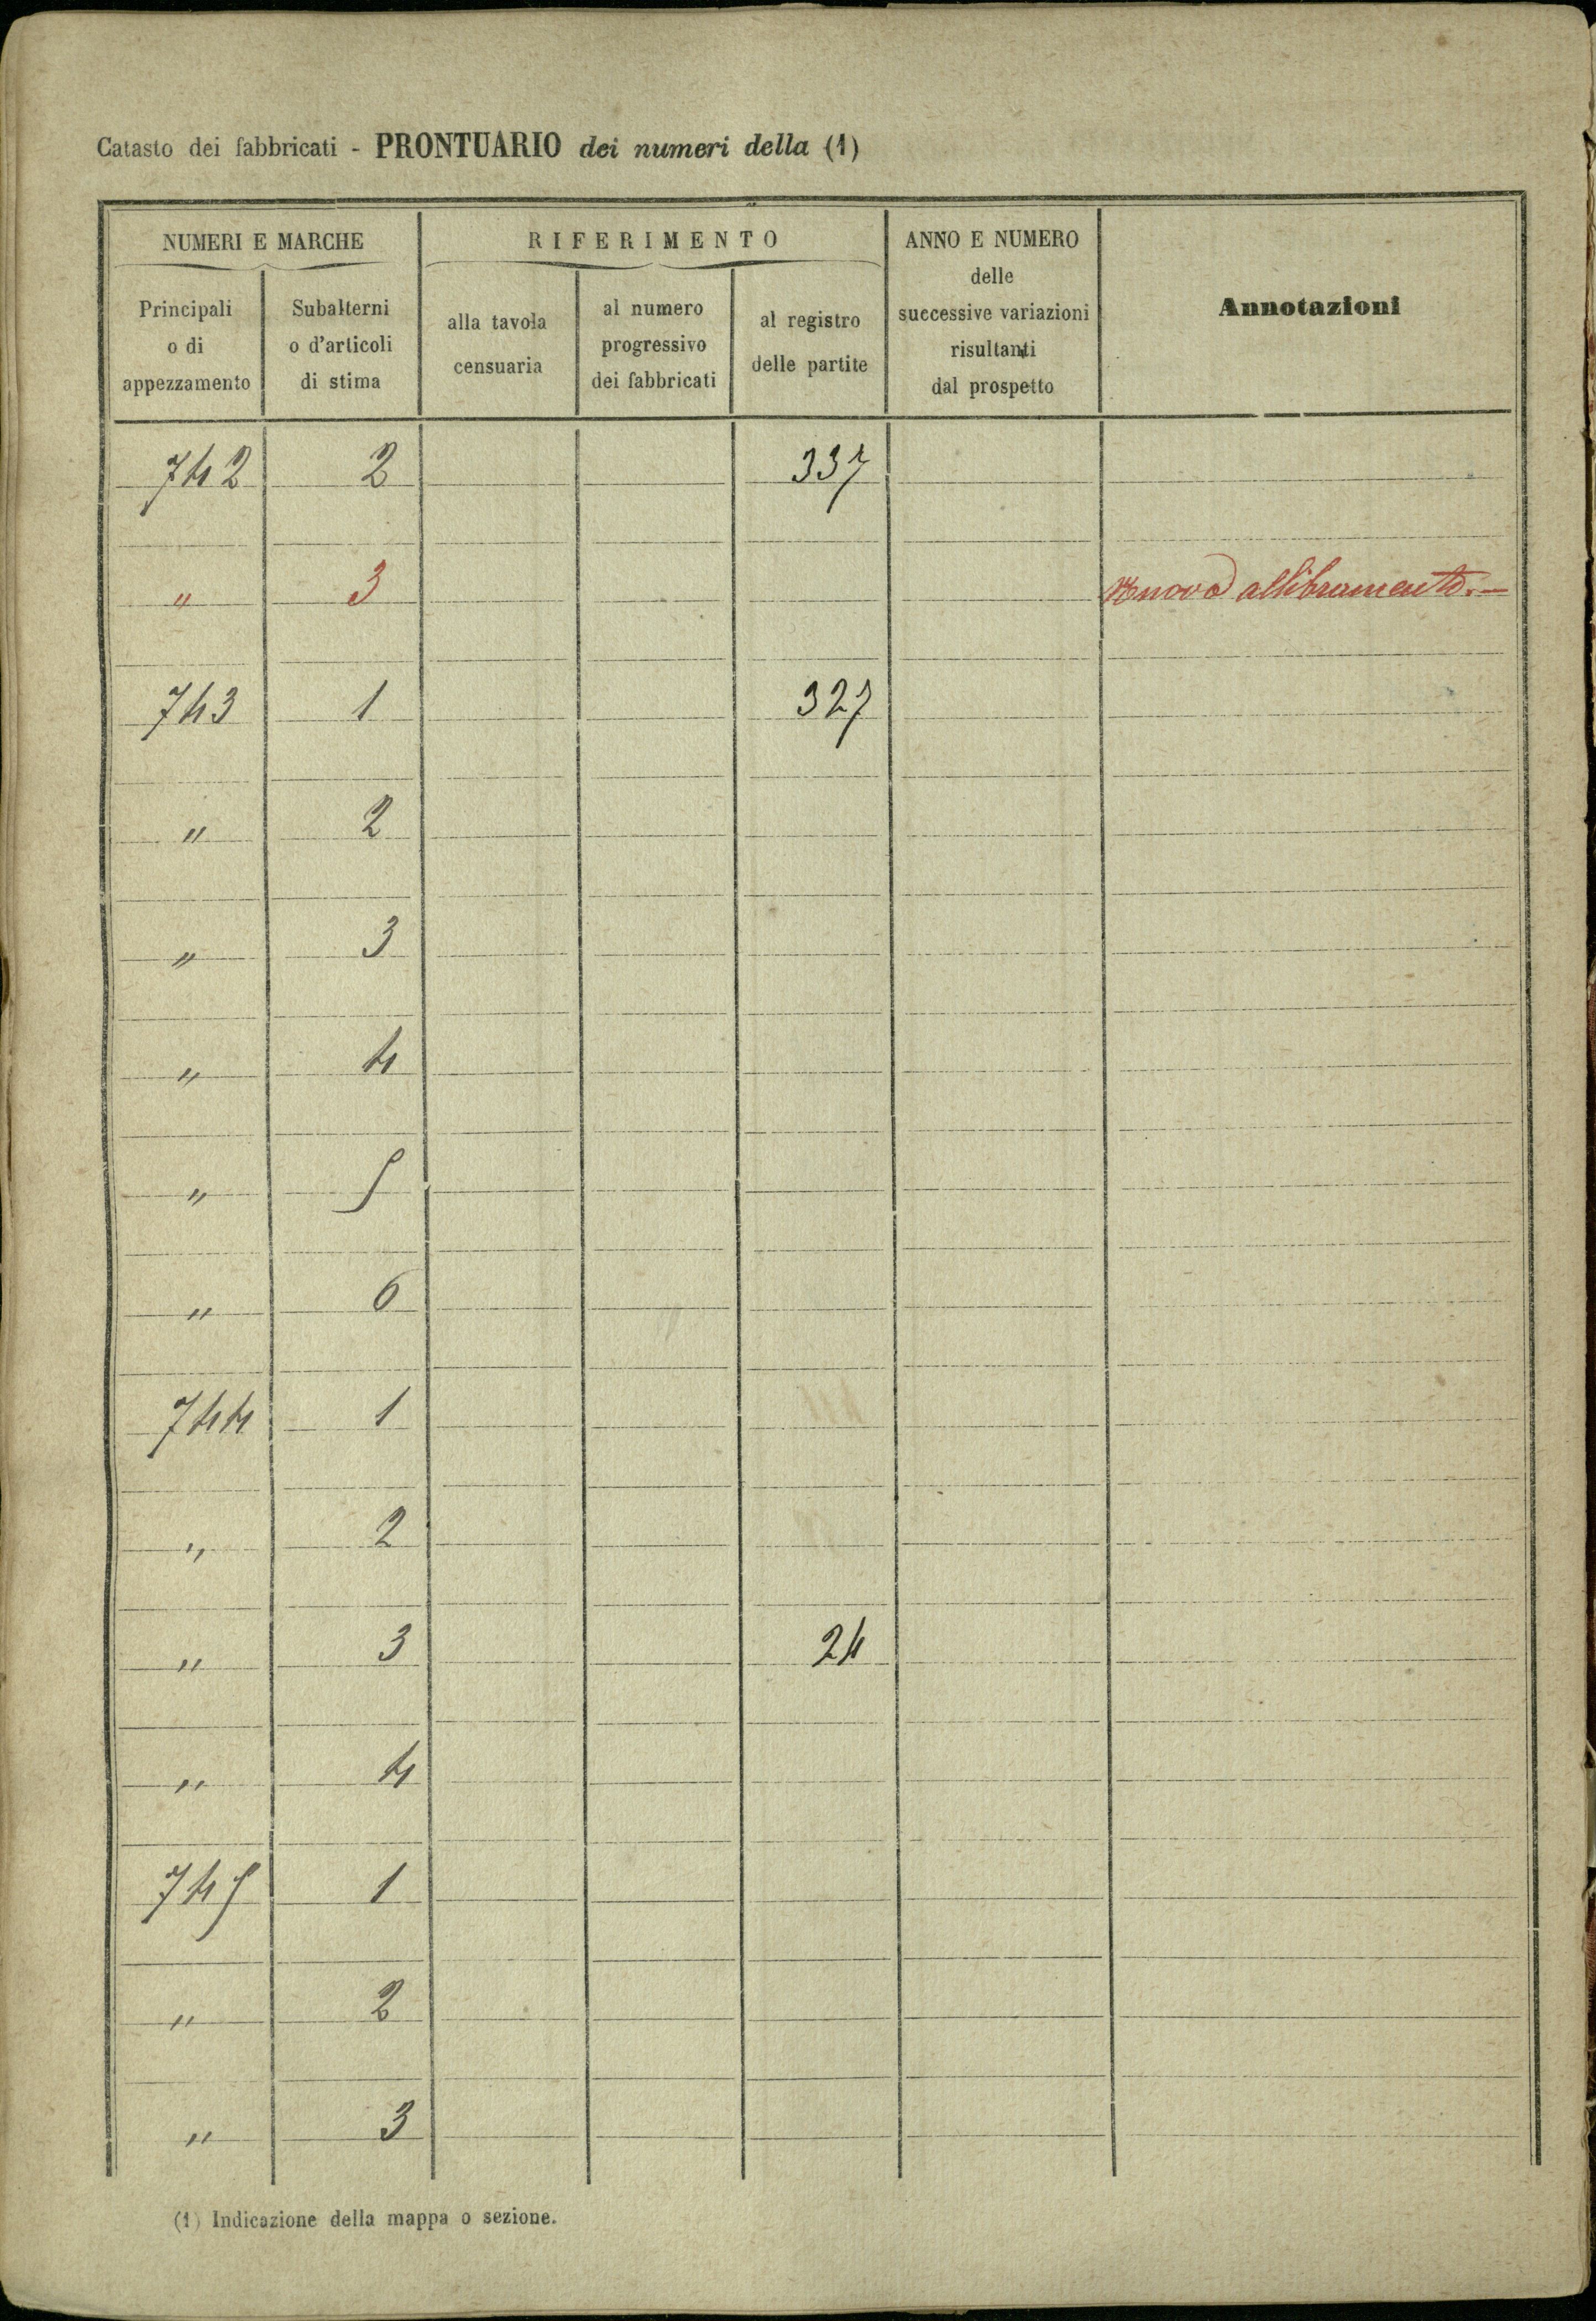 Catasto dei fabbricati - PRONTUARIO dei numeri della (1)
NUMERI E MARCHE
RIFERIMENTO
ANNO E NUMERO
delle
successive variazioni
risultanti
dal prospetto
Annotazioni
Principali
o di
appezzamento
Subalterni
o d'articoli
di stima
alla tavola
censuaria
al numero
progressivo
dei fabbricati
al registro
delle partite
742 2 337
" 3 nuovo allibramento. —
743 1 327
" 2
" 3
" 4
" 5
" 6
744 1
" 2
" 3 24
" 4
745 1
" 2
" 3
(1) Indicazione della mappa o sezione.